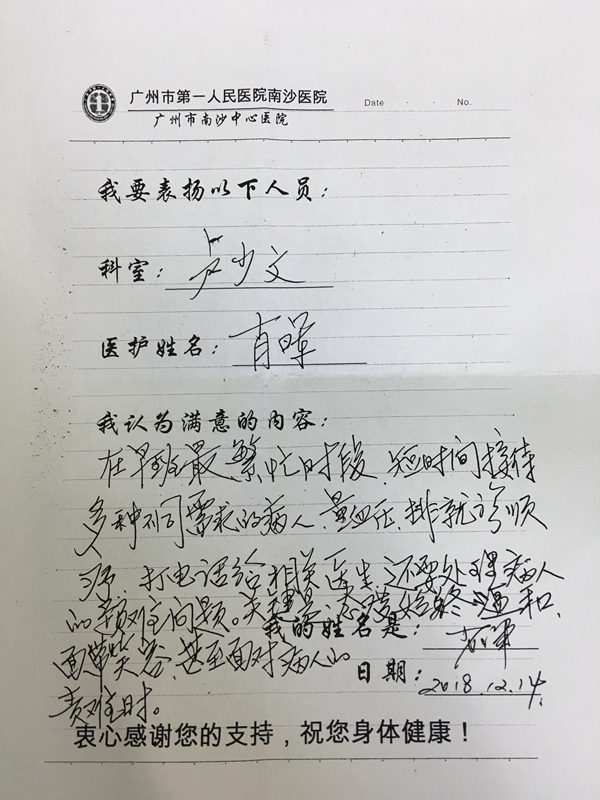 广州市第一人民医院南沙医院
Date No.
广州市南沙中心医院
我要表扬以下人员：
科室：卢少文
医护姓名：肖晖
我认为满意的内容：
在早班最繁忙时段，短时间接待
多种不同需求的病人，量血压，排就诊顺
序，打电话给相关医生，还要处理病人
的疑难问题。关键是，态度始终温和，
面带笑容，甚至面对病人的
责难时。
我的姓名是：
日期：2018.12.14.
衷心感谢您的支持，祝您身体健康！